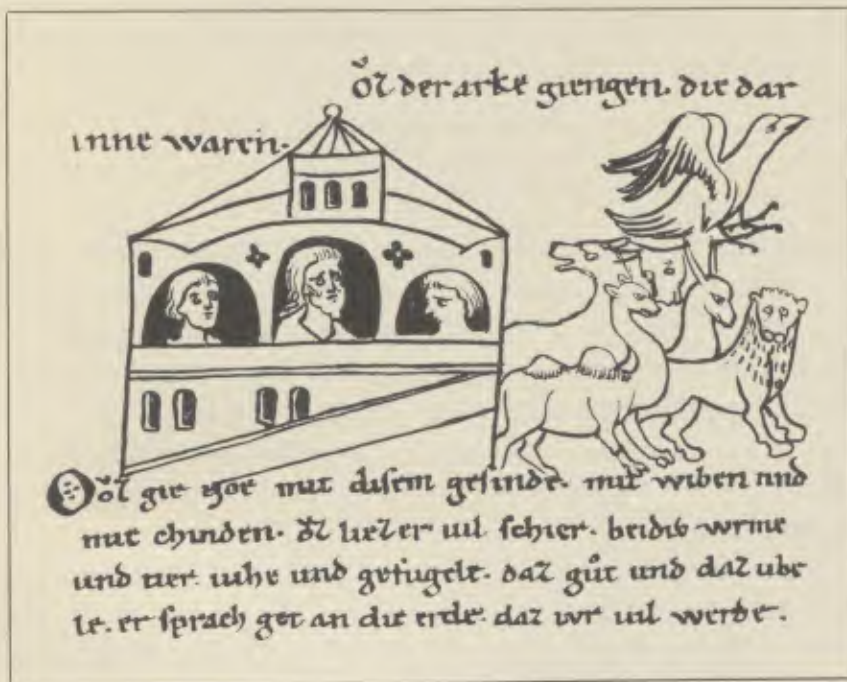 Ǒz der arke giengen. die dar
inne waren.
Ǒz gie noe mit disem gesinde. mit wiben und
mit chinden. ǒz liez er uil schier. beidiv wrme
und tier. uihe und gefugele. daz gůt und daz ube
le. er sprach get an die erde. daz iwr uil werde.